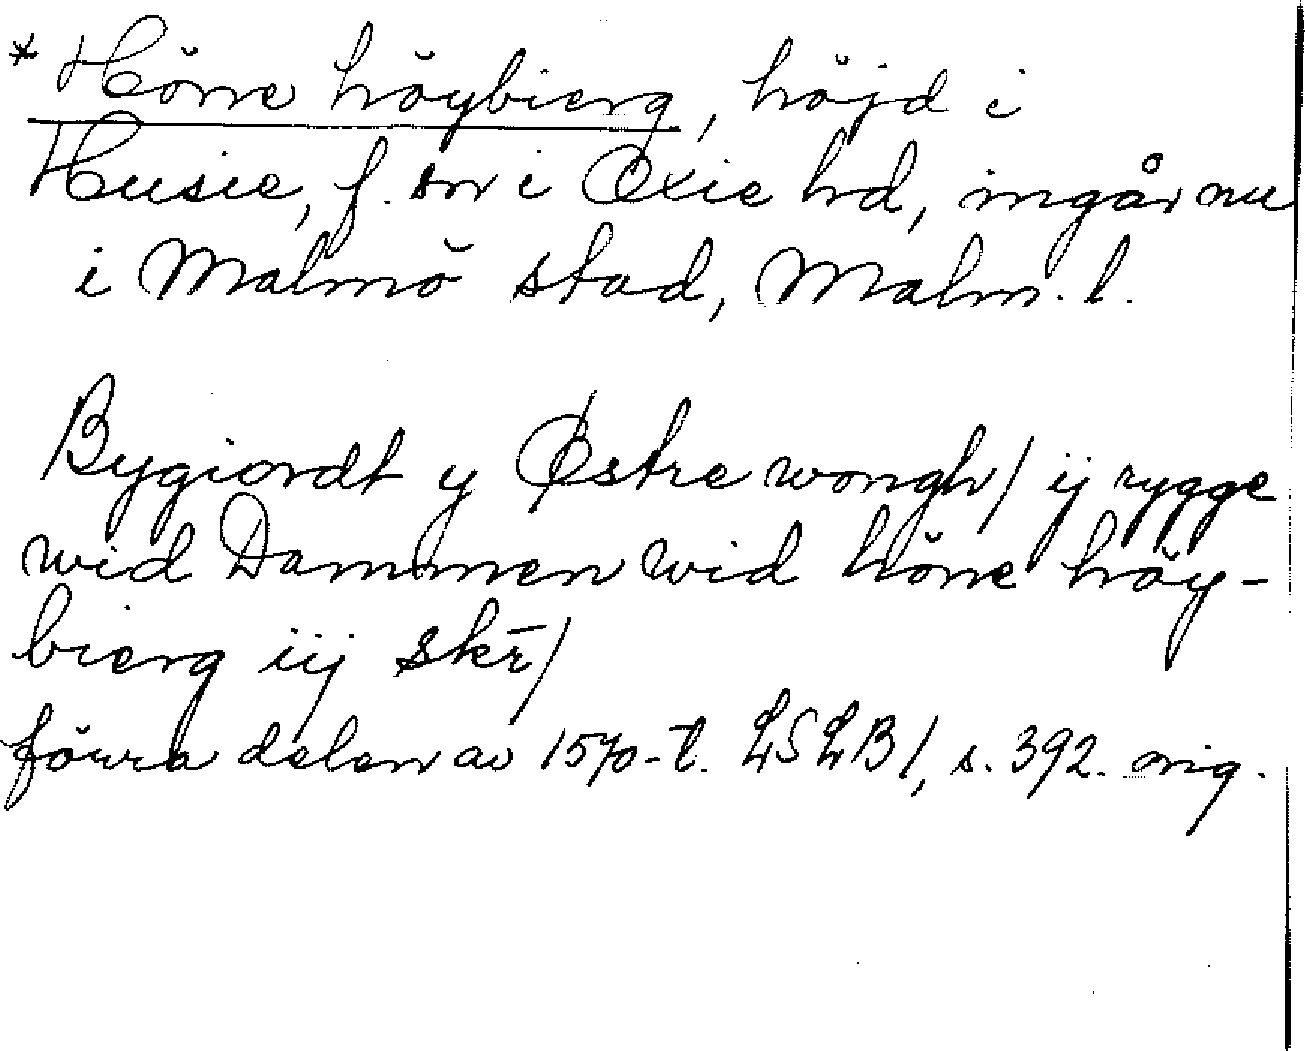 * Hörre höybierg, höjd i
Husie, f. sn i Oxie hd, ingår nu
i Malmö stad, Malm. l.
Bygiordt y Østre wongh/ ij rygge
wid Dammen wid hörre höy-
bierg iij skr̄/
förra delen av 1570-t. LSLB 1, s. 392. orig.